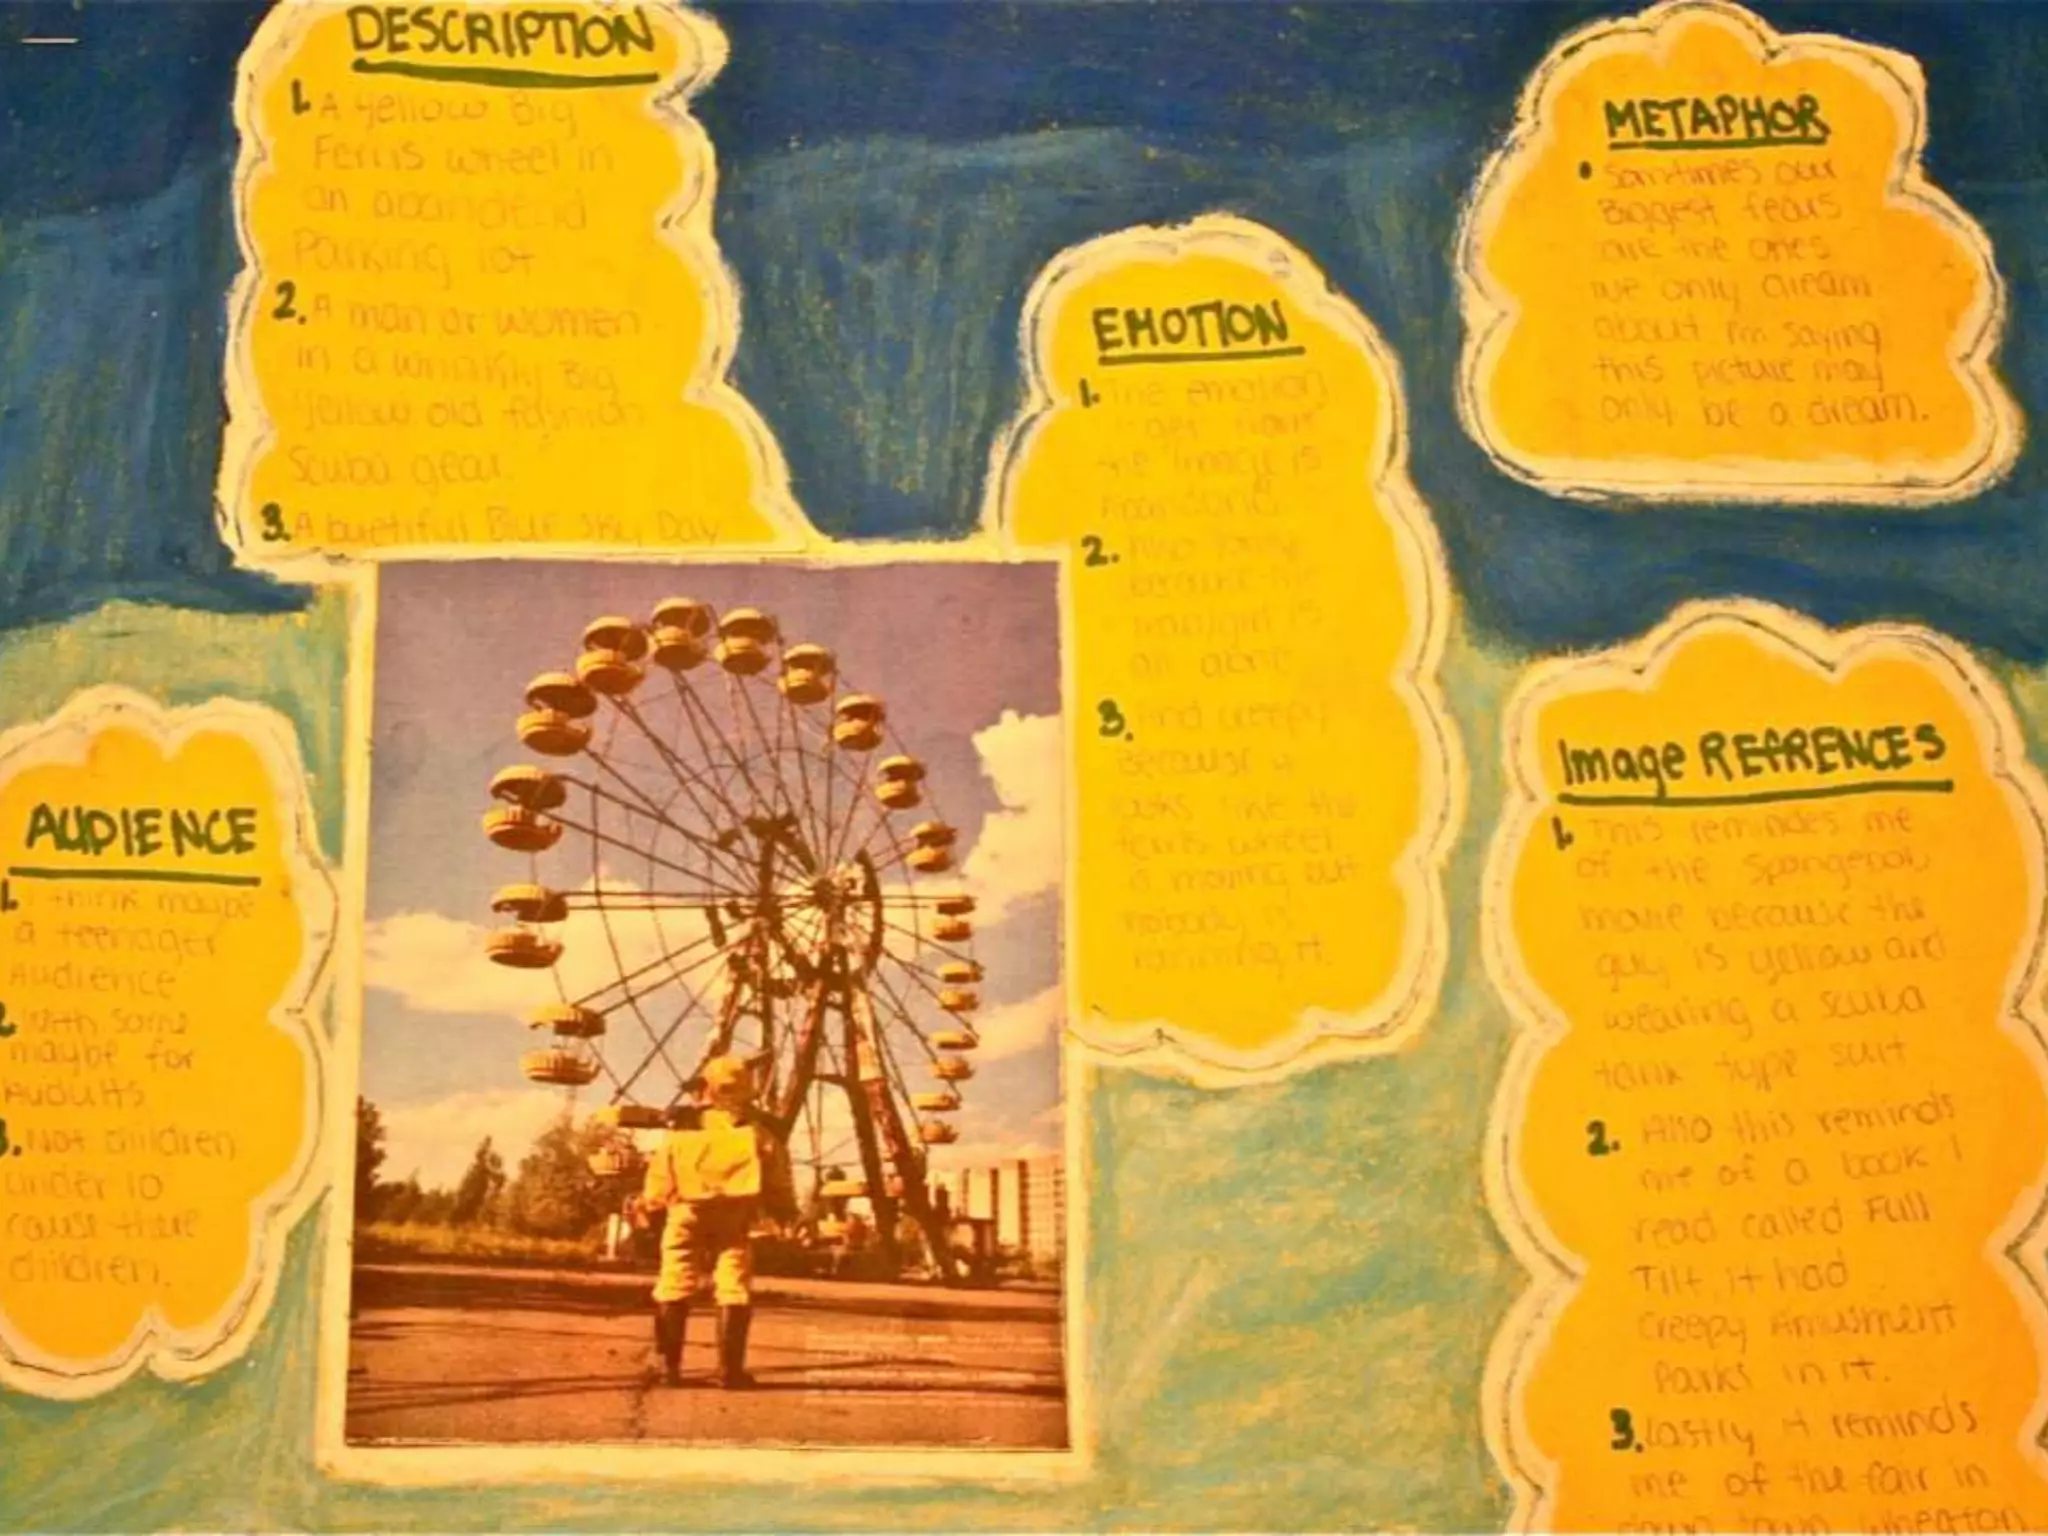 DESCRIPTION
1. A yellow Big
Ferris wheel in
an
Parking lot
2. A man or women
in a wrinkly Big
yellow old fashion
Scuba gear.
3. A buetiful Blue sky Day
AUDIENCE
1. I think maybe
a teenager
Audience
2. With some
maybe for
Audults
3. Not children
under 10
cause there
children.
EMOTION
1. The emotion
I get from
the image is
2. Also
because the
man/girl is
all alone
3. And creepy
Because it
looks like the
ferris wheel
is moving but
nobody is
running it.
METAPHOR
• Sometimes our
Biggest fears
are the ones
we only dream
about I'm saying
this picture may
only be a dream.
Image REfRENCES
1. This remindes me
of the Spongebob
movie because the
guy is yellow and
wearing a scuba
tank type suit
2. Also this reminds
me of a book I
read called Full
Tilt, it had
creepy Amusment
Parks in it.
3. Lastly it reminds
me of the fair in
down town wheaton